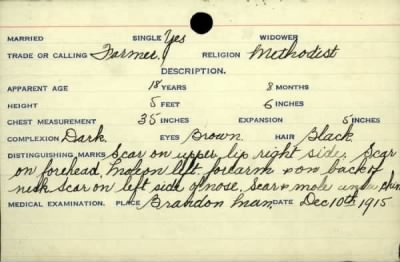 MARRIED SINGLE Yes WIDOWER
TRADE OR CALLING Farmer. RELIGION Methodist
DESCRIPTION.
APPARENT AGE 18 YEARS 8 MONTHS
HEIGHT 5 FEET 6 INCHES
CHEST MEASUREMENT 35 INCHES EXPANSION 5 INCHES
COMPLEXION Dark. EYES Brown HAIR Black
DISTINGUISHING MARKS Scar on upper lip right side. Scar
on forehead, Mole on left forearm & on back of
neck Scar on left side of nose. Scar & mole under
MEDICAL EXAMINATION. PLACE Brandon Man. DATE Dec 10th 1915